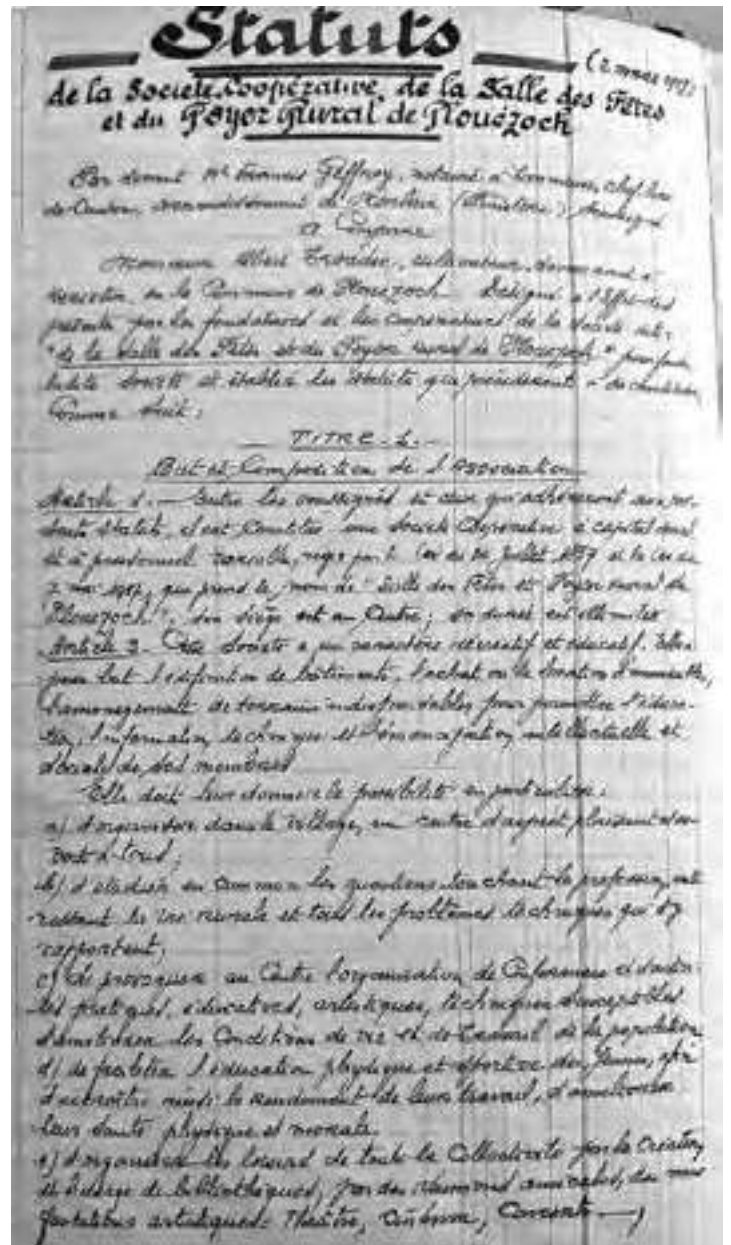 Statuts
(2 mars
de la Société Coopérative de la Salle des Fêtes
et du Foyer Rural de Plouézoch
Par devant Me Francis Geffroy, notaire à Lanmeur, chef lieu
de Canton, arrondissement de Morlaix (Finistère)
a Comparu
Monsieur Albert cultivateur, demeurant à
en la Commune de Plouézoch. Désigné à l'effet des
présents par les fondateurs et les de la Société dite:
"de la Salle des Fêtes et du Foyer rural de Plouézoch" pour
ladite Société et établir les Statuts qui
Comme suit:
TITRE - 1 -
But et Composition de l'Association
Article 1. - Entre les soussignés et ceux qui adhéreront aux pré-
sents Statuts, il est Constitué une Société Coopérative à capital
et à personnel variable, régie par la loi du 24 juillet 1867 et la loi du
qui prend le nom de "Salle des Fêtes et Foyer rural de
Plouézoch", son siège est au Centre; sa durée est illimitée
Article 2. Cette Société a un caractère récréatif et éducatif. Elle a
pour but l'édification de bâtiments, l'achat ou la location d'immeubles,
l'aménagement de terrains indispensables pour permettre l'éduca-
tion, l'information technique et l'émancipation intellectuelle et
sociale de ses membres
Elle doit leur donner la possibilité en particulier:
a) d'organiser dans le village, un centre d'aspect plaisant
vert à tous;
b) d'étudier en commun les questions touchant la profession, inté-
ressant la vie rurale et tous les problèmes techniques qui s'y
rapportent;
c) de provoquer au Centre l'organisation de Conférences et
tés pratiques, éducatives, artistiques, techniques susceptibles
d'améliorer les Conditions de vie et de travail de la population
d) de faciliter l'éducation physique et sportive des jeunes, afin
d'accroître ainsi le rendement de leur travail, d'améliorer
leur santé physique et morale
e) d'organiser les loisirs de toute la Collectivité par la Création
et l'usage de bibliothèques, par des réunions amicales, des
artistiques: Théâtre, Cinéma, Concerts